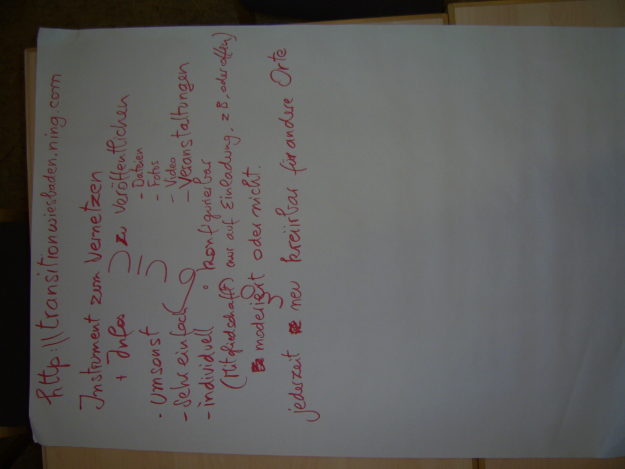 http://transitionwiesbaden.ning.com
Instrument zum Vernetzen
+ Infos zu Veröffentlichen
- Dateien
- Fotos
- Video
- Veranstaltungen
· Umsonst
- Sehr einfach
- individuell konfigurierbar
(Mitgliedschaft) nur auf Einladung, z B, oder offen)
moderiert oder nicht.
jederzeit neu kreiirbar für andere Orte